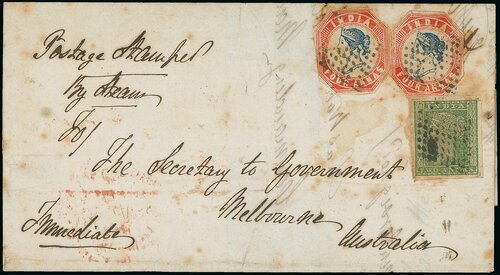 INDIA
FOUR ANNAS
INDIA
FOUR ANNAS
INDIA
Postage Stamped
By Steam
To/
The Secretary to Government
Melbourne
Immediate
Australia